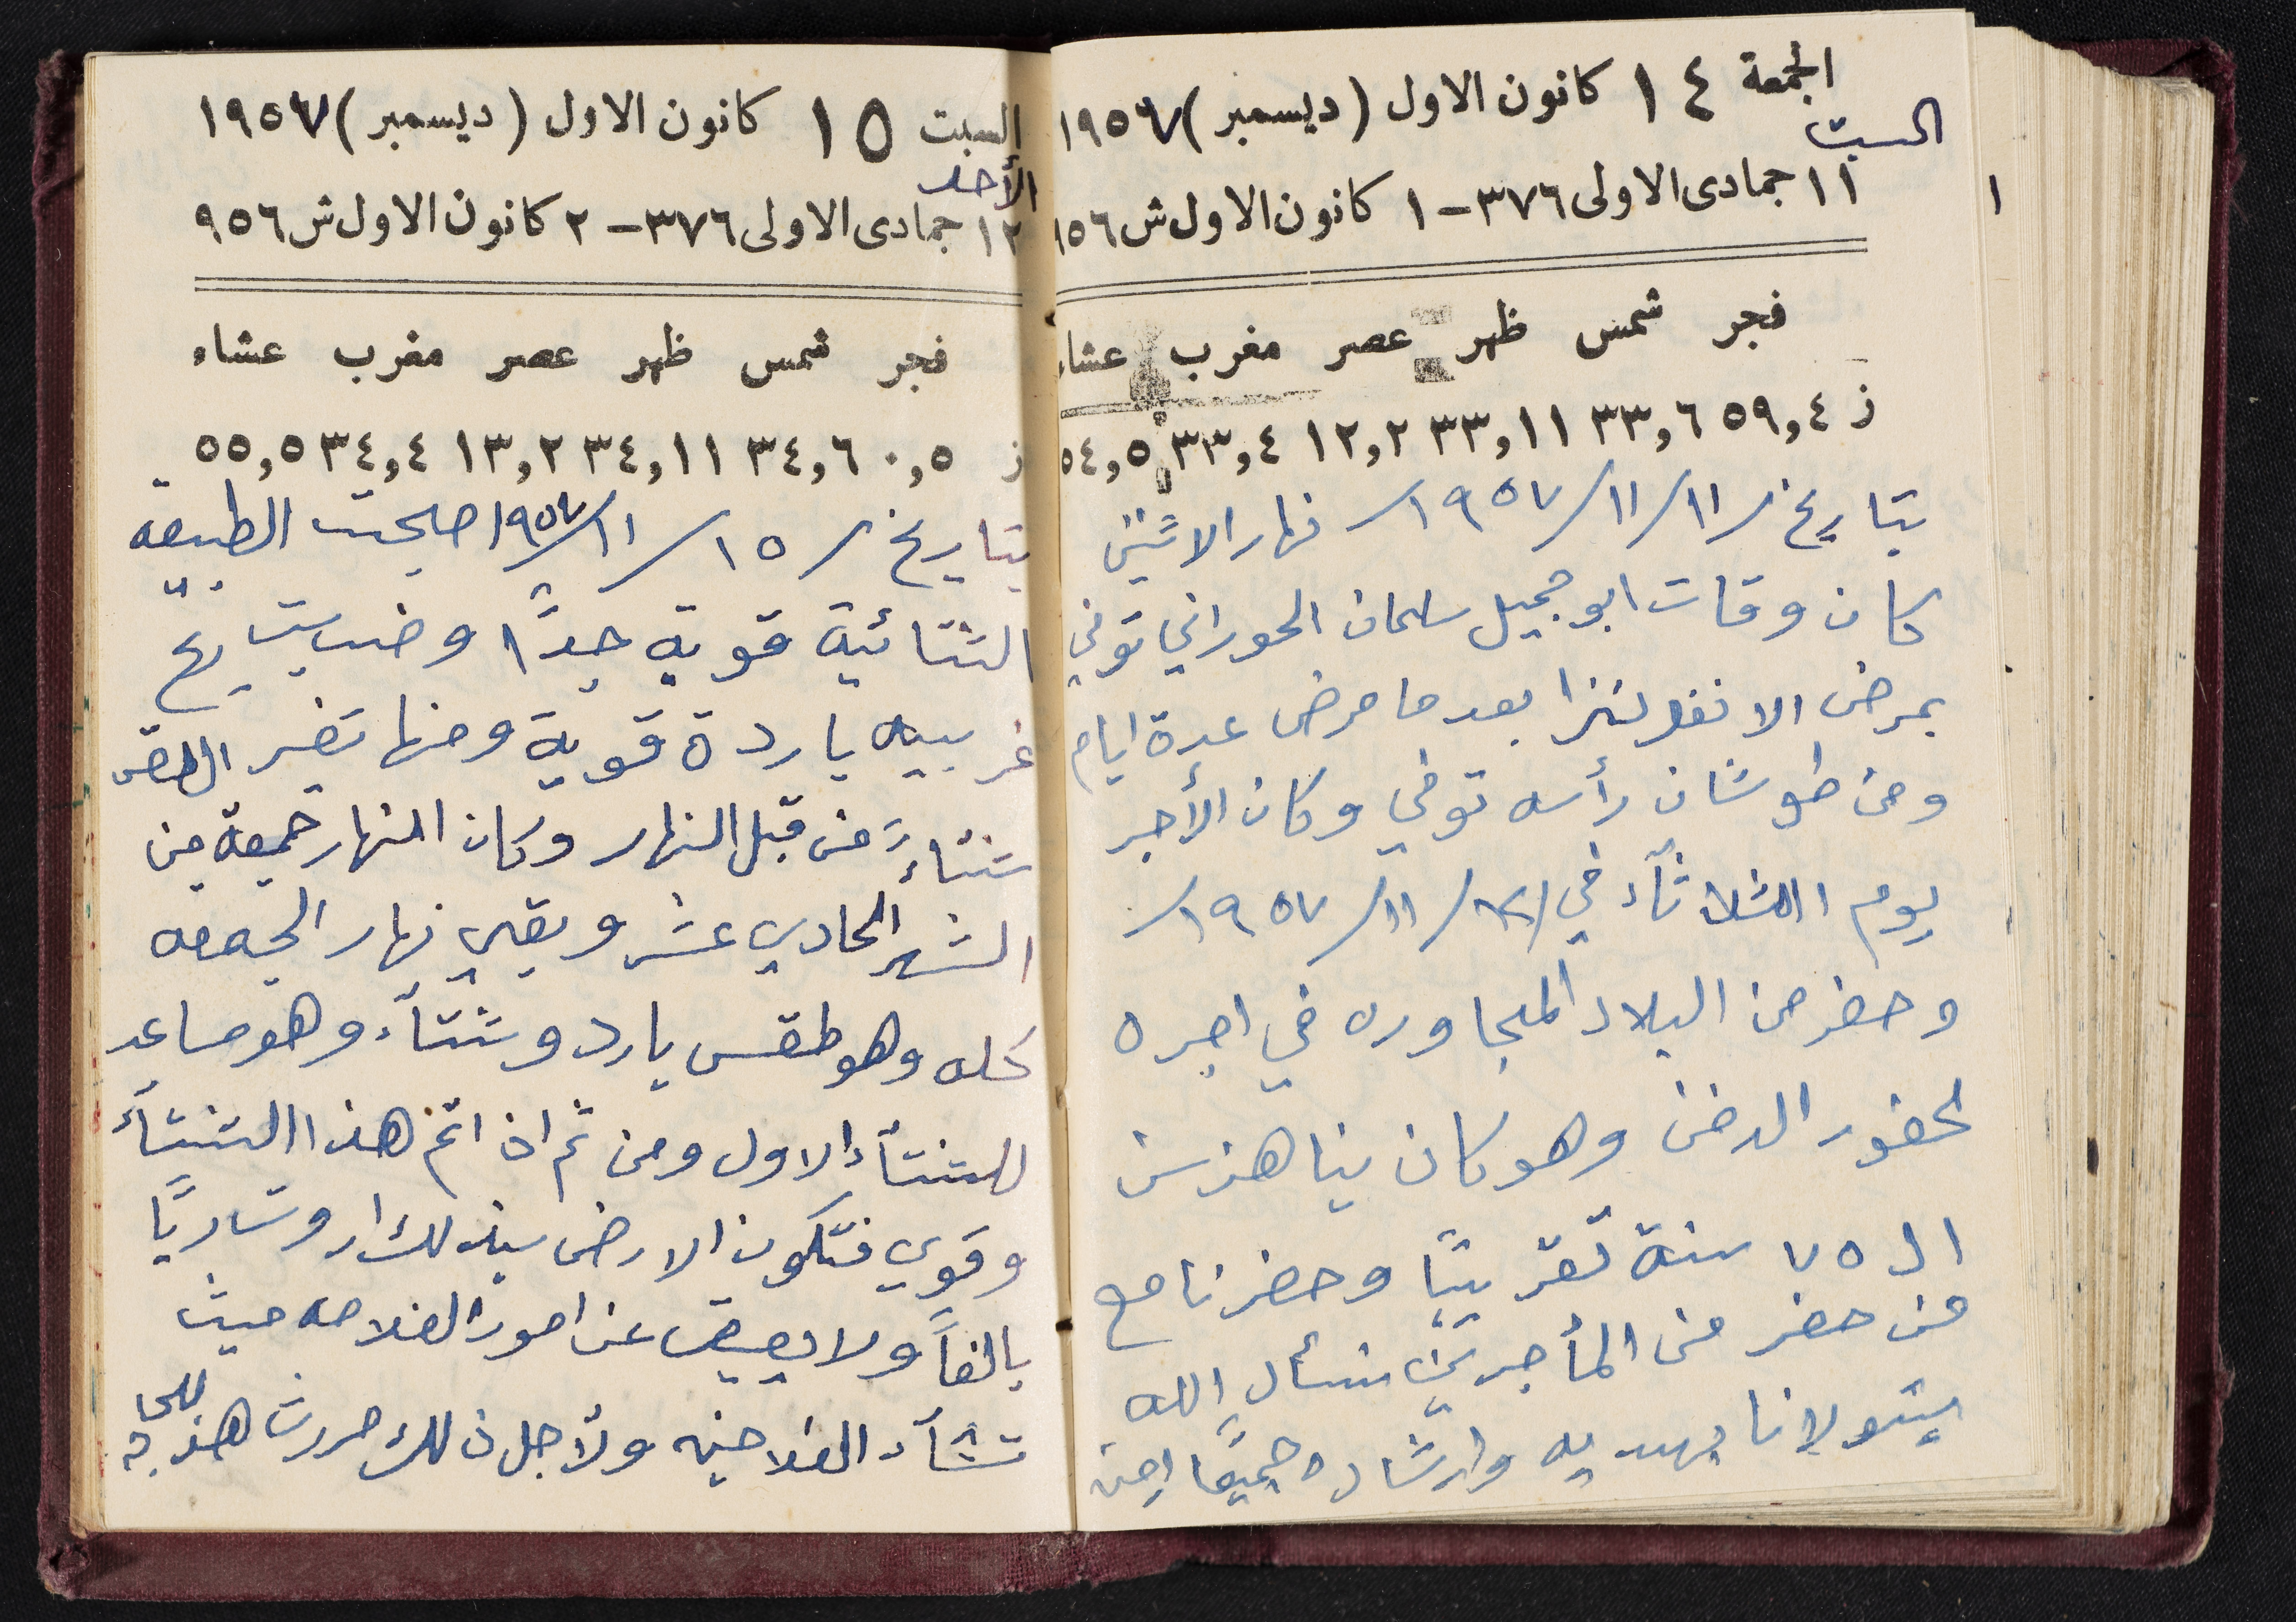 الجمعة ١٤ كانون الاول (ديسمبر) ١٩٥٧
السبت
١١ جمادى الاولى ٣٧٦ - ١ كانون الاول ش ٩٥٦
فجر شمس ظهر عصر مغرب عشاء
ز ٥٩,٤ ٣٣,٦ ٣٣,١١ ١٢,٢ ٣٣,٤ ٥٤,٥
بتاريخ /١١/١١/١٩٥٧/ نهار الاثنين
كان وقات ابو جميل سلمان الحوراني توفي
بمرض الانفلونزا بعد ما مرض عدة ايام
ومن طوشان رأسه توفي وكان الأجر
يوم الثلاثآء في /١٢/١١/١٩٥٧/
وحضر من البلاد المجاوره في اجره
لحضور الدفن وهو كان يناهز سن
ال ٧٥ سنة تقريبًا وحضرنا مع
من حضر من المأجرين نسأل الله
يتولانا بهديه وارشاده جميعًا امين
السبت ١٥ كانون الاول (ديسمبر) ١٩٥٧
الأحد
١٢ جمادى الاولى ٣٧٦ - ٢ كانون الاول ش ٩٥٦
فجر شمس ظهر عصر مغرب عشاء
ز ٠,٥ ٣٤,٦ ٣٤,١١ ١٣,٢ ٣٤,٤ ٥٥,٥
بتاريخ /١٥/١١/١٩٥٧ صبحت الطبيعه
الشتائية قوية جدًا وضبابيت ريح
غربيه باردة قوية ومنها تغير الطقس
شتاءً من قبل النهار وكان النهار جمعة من
الشهر الحادي عشر وبقي نهار الجمعه
كله وهو طقس بارد وشتآء وهو مساعد
للشتآء الاول ومن ثم اذ اتم هذا الشتآء
وقوي فتكون الارض بذلك اروت ريًا
بالغاً ولا يعيق عن امور الفلاحه حيث
تشآء الفلاحين ولأجل ذلك حررت هذ